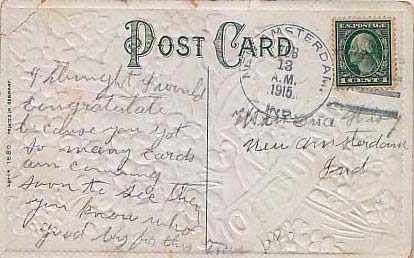 POST CARD
NEW AMSTERDAM,
FEB
13
A.M.
1915
IND.
U.S. POSTAGE
1 CENT 1
I thought I would
congratulate
because you got
so many cards
am coming
soon to see they
you know who
good by for this time
Miss
New Amsterdam
Ind
SERIES 1680
PRINTED IN GERMANY